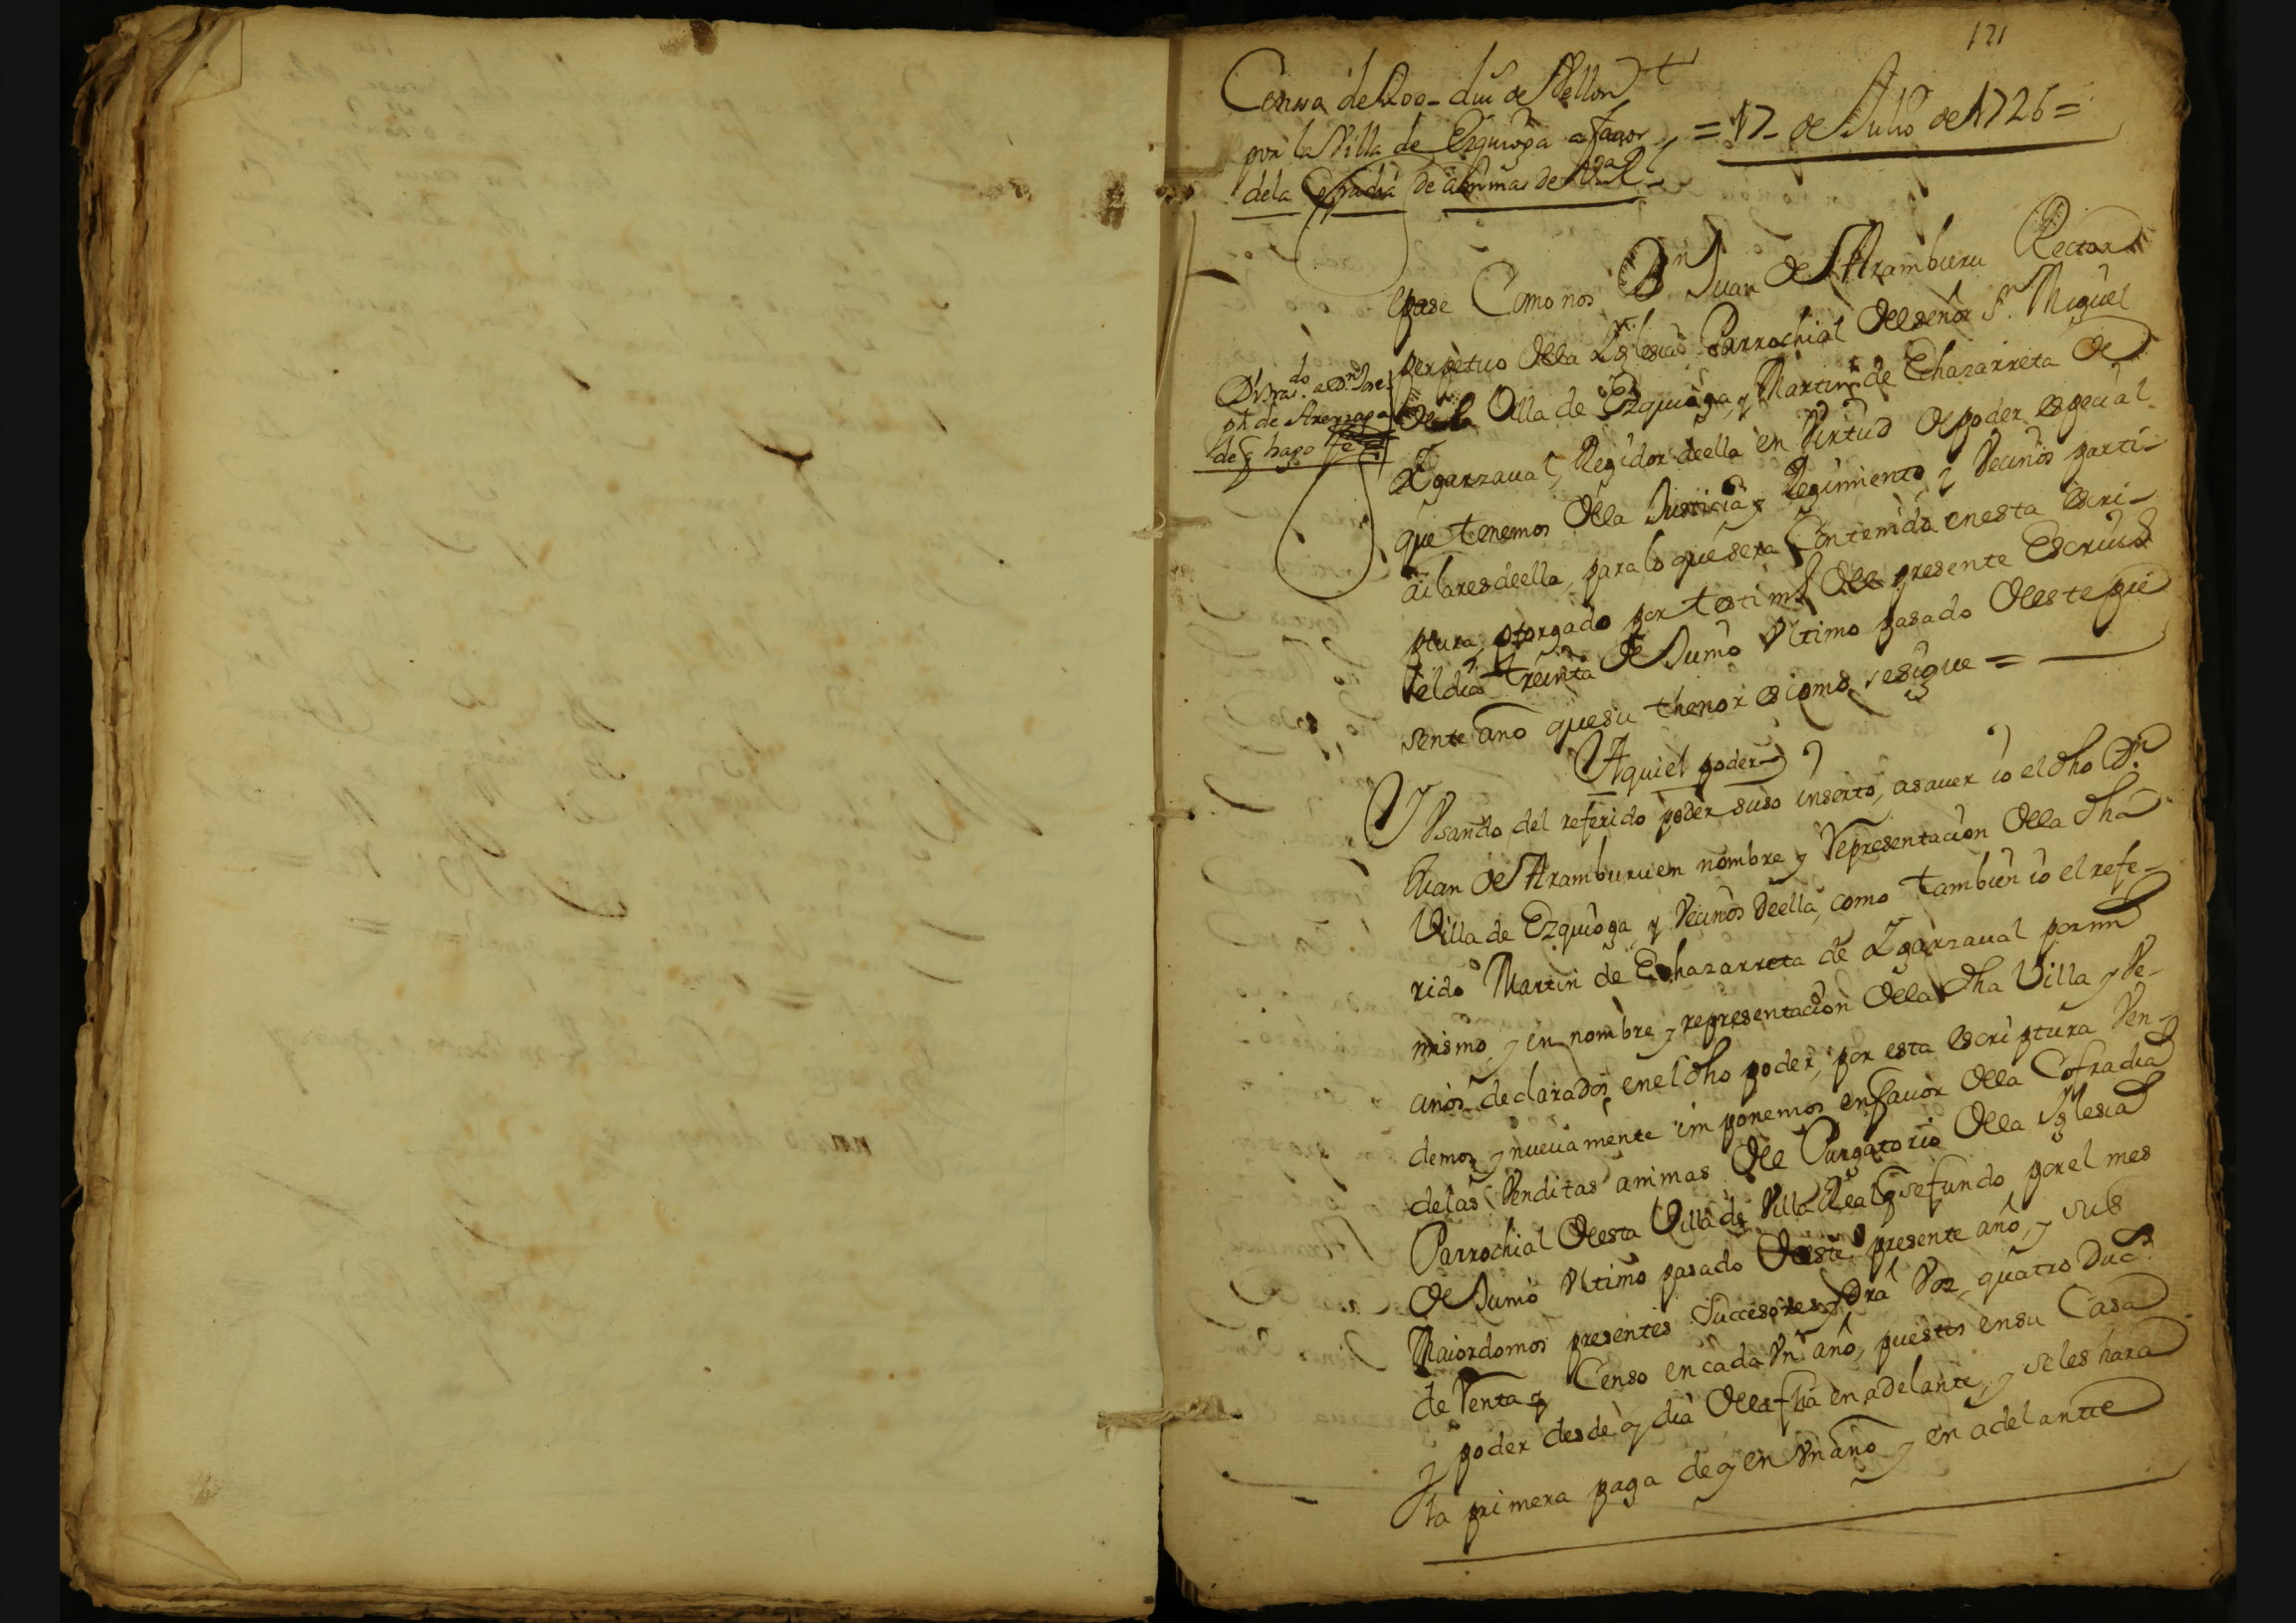 121
Censo de 200 duº de Vellon
por la Villa de Ezquioga a favor
dela Cofradia de animas de Vª Rl
= 17 de Julio de 1726 =
epase Como nos Dn Juan de Aramburu Rector
perpetuo della Yglesia Parrochial del señor Sn. Miguel
de la Villa de Ezquioga, y Martin de Echazarreta de
Ygarzaual, Regidor deella en virtud de poder especial
que tenemos della Justicia y Regimiento, y vecinos parti-
culares deella, para lo que sera Contenido en esta escri-
ptura, otorgado por testimº del presente Escriuº
el dia treinta de Junio vltimo pasado deeste pre
sente año que su thenor es como se sigue =
do a Dn Jose
ph de Arezzaga
de q hago fee
Aqui el poder
Y Vsando del referido poder suso inserto, asauer io el dho Dn
Juan de Aramburu en nombre y representacion della dha
Villa de Ezquioga, y vecinos deella, como tambien io el refe-
rido Martin de Echazarreta de Ygarzaual por mi
mismo, y en nombre y representacion della dha Villa y ve-
cinos declarados en el dho poder, por esta escriptura ven-
demos y nueuamente imponemos en fauor della Cofradia
delas Venditas animas del Purgatorio della Yglesia
Parrochial deesta Villa de Villa Real q se fundo por el mes
de Junio vltimo pasado deeste presente año, y sus
Maiordomos presentes Succesores quatro Ducs
de Renta y Censo en cada vn año, puestos en su Casa
y poder desde oy dia della fha en adelante, y se les hara
la primera paga de oy en vn año y en adelante